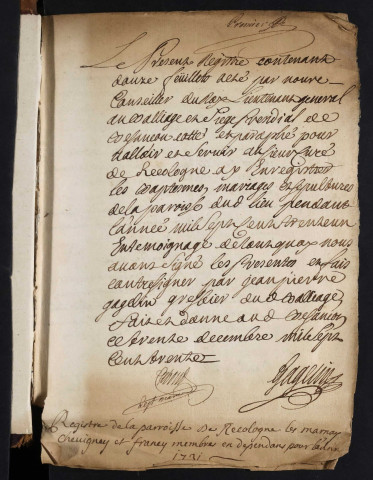 Le Present Registre contenant
douze feuillets a esté par nous
Conseiller du Roy Lieutenant general
au Bailliage et Siege presidial de
Besancon cotté et paraphé pour
valloir et servir au Sieur Curé
de Recologne a y Enregistrer
les baptemes, mariages et sepultures
de la paroisse dud lieu pendant
L'année mil sept cent trente un
En temoignage de quoy nous
avons signé les presentes et fait
contresigner par jean pierre
gagelin greffier dud Bailliage
fait et donné aud Besancon
ce trente decembre mil sept
Cent trente
Gagelin
Registre de la parroisse de Recologne les marnay
Chevigney et franey membre en dependans pour l'année
1731